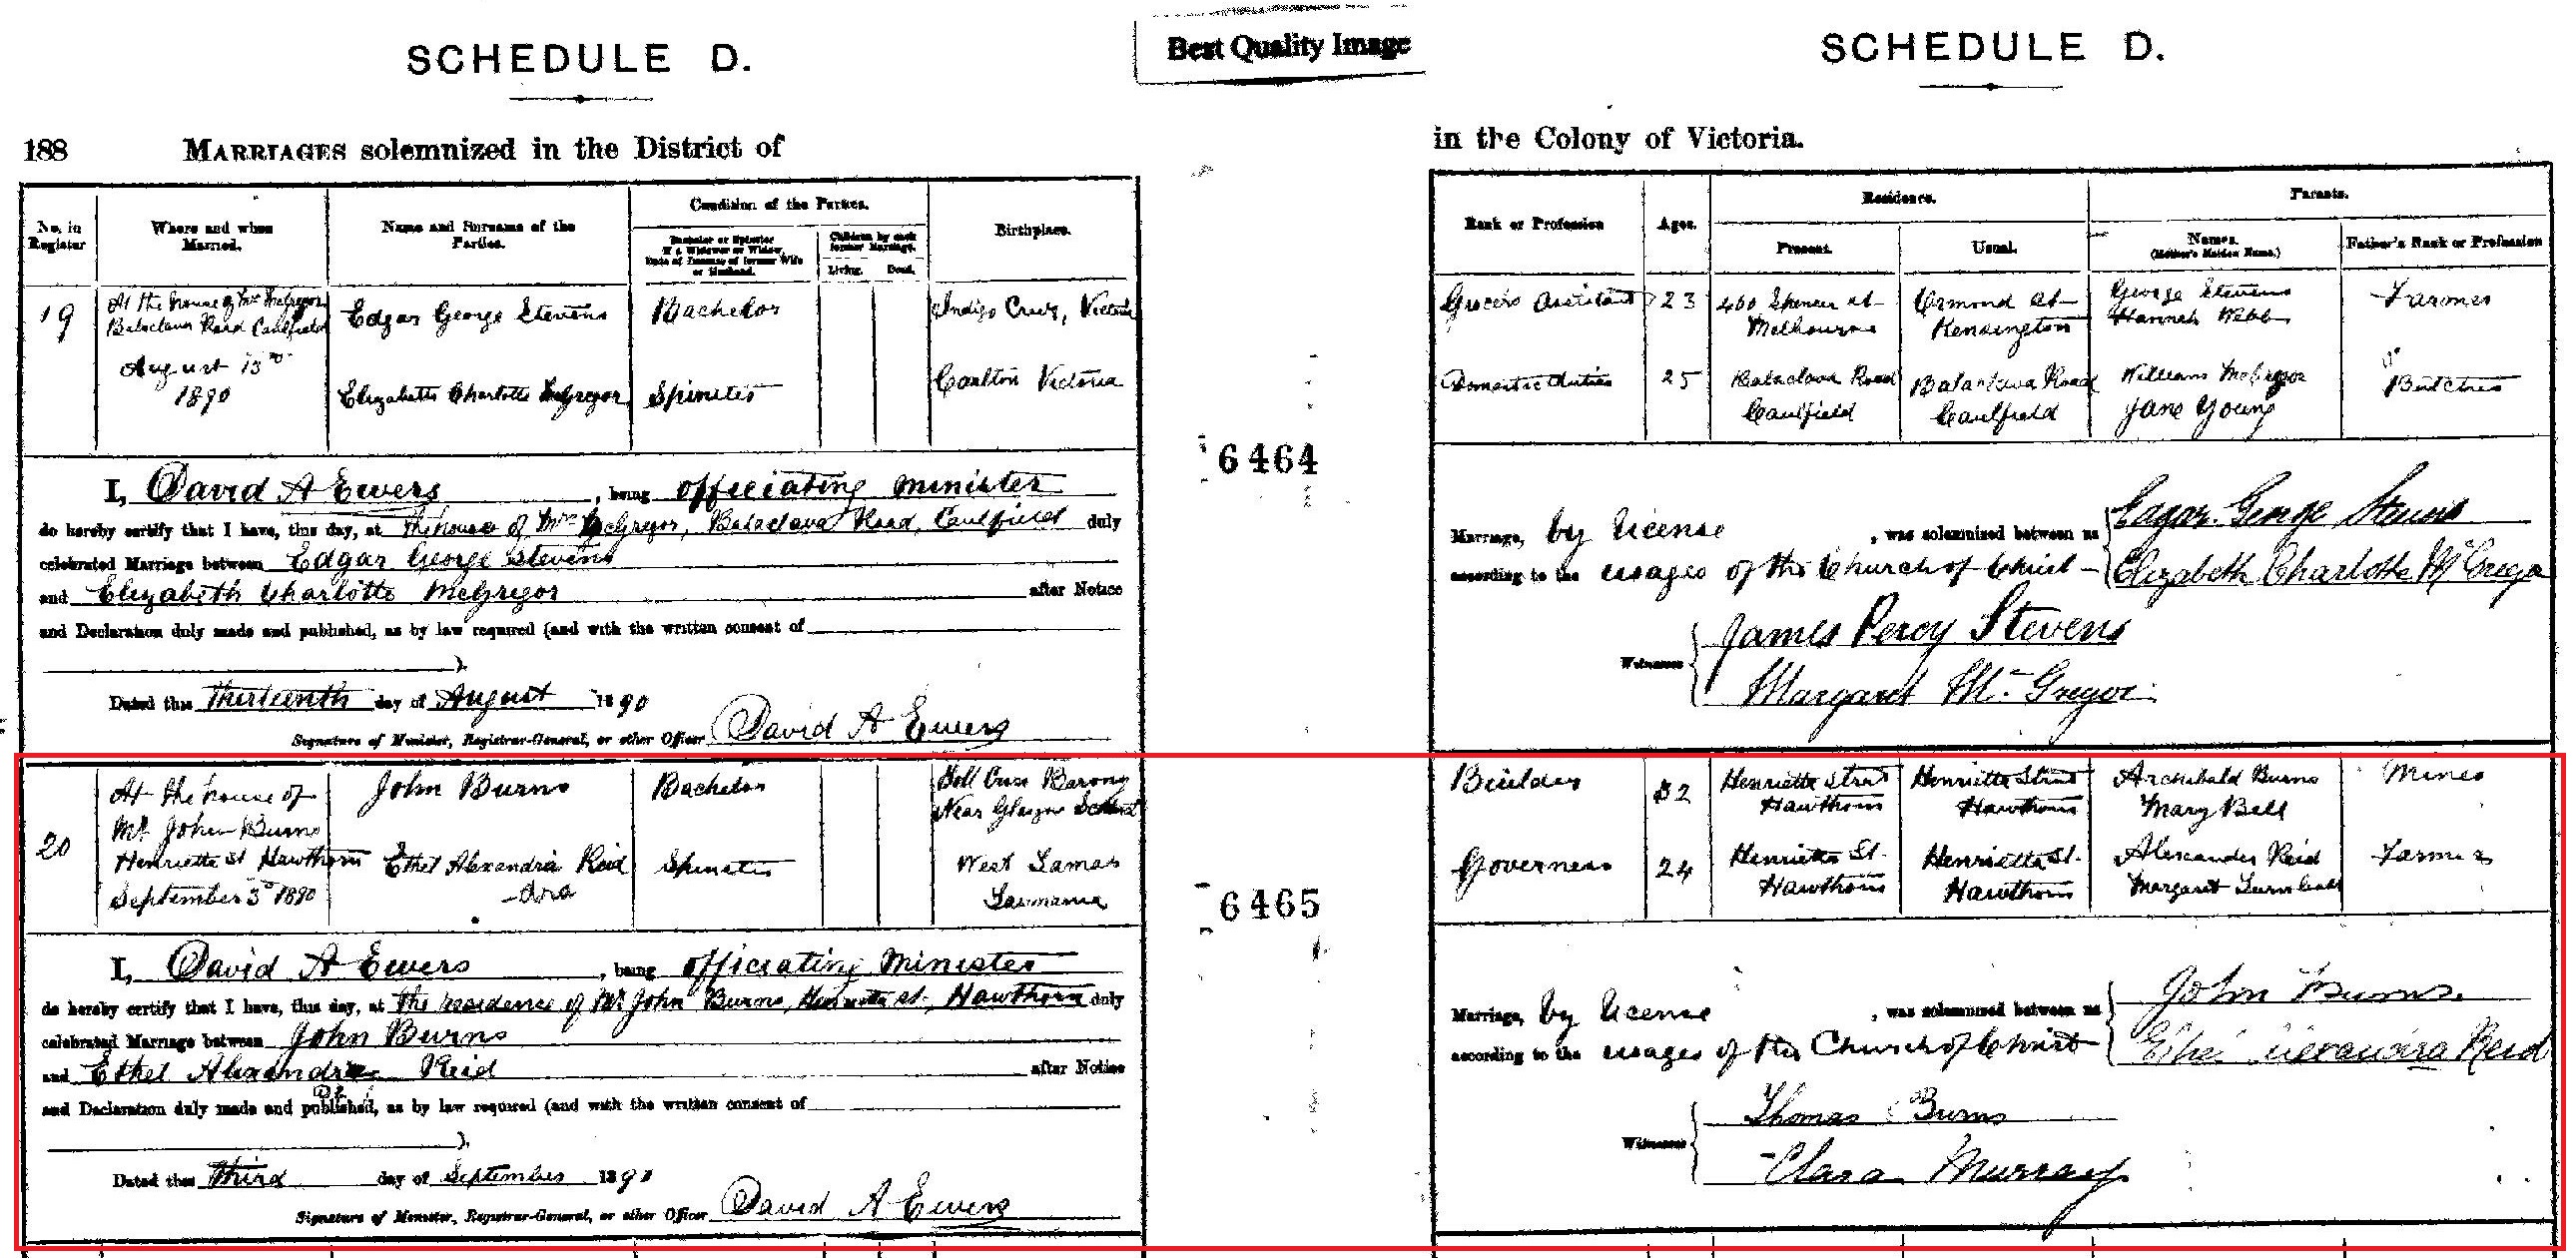 SCHEDULE D.
Best Quality Image
SCHEDULE D.
188 MARRIAGES solemnized in the District of
in the Colony of Victoria.
No. in Register
Where and when Married.
Name and Surname of the Parties.
Condition of the Parties.
Bachelor or Spinster
Children by each former Marriage.
Living. Dead.
Birthplace.
Rank or Profession
Ages.
Residence.
Present.
Usual.
Parents.
Names.
(Mother's Maiden Name.)
Father's Rank or Profession
19
At the house of Mrs McGregor
Balaclava Road Caulfield
August 13th
1890
Edgar George Stevens
Bachelor
Indigo Creek, Victoria
Grocers Assistant
23
460 Spencer st
Melbourne
Ormond st
Kensington
George Stevens
Hannah Webb
Farmer
Elizabeth Charlotte McGregor
Spinster
Carlton Victoria
Domestic Duties
25
Balaclava Road
Caulfield
Balaclava Road
Caulfield
William McGregor
Jane Young
Butcher
6464
I, David A Ewers, being officiating minister
do hereby certify that I have, this day, at The house of Mrs McGregor, Balaclava Road, Caulfield duly
celebrated Marriage between Edgar George Stevens
and Elizabeth Charlotte McGregor after Notice
and Declaration duly made and published, as by law required (and with the written consent of
).
Dated this Thirteenth day of August 1890
Signature of Minister, Registrar-General, or other Officer David A Ewers
Marriage, by license, was solemnized between us
according to the usages of the Church of Christ
Edgar George Stevens
Elizabeth Charlotte McGregor
Witnesses
James Percy Stevens
Margaret McGregor
20
At the house of
Mr John Burns
Henrietta st Hawthorn
September 3rd 1890
John Burns
Bachelor
Barony
Near Glasgow Scotland
Builder
32
Henrietta Street
Hawthorn
Henrietta Street
Hawthorn
Archibald Burns
Mary Bell
Miner
Ethel Alexandria Reid
-dra
Spinster
West Tamar
Tasmania
Governess
24
Henrietta St.
Hawthorn
Henrietta St.
Hawthorn
Alexander Reid
Margaret Turnbull
Farmer
6465
I, David A Ewers, being officiating Minister
do hereby certify that I have, this day, at The residence of Mr John Burns, Henrietta st., Hawthorn duly
celebrated Marriage between John Burns
and Ethel Alexandra Reid after Notice
and Declaration duly made and published, as by law required (and with the written consent of
).
Dated this Third day of September 1890
Signature of Minister, Registrar-General, or other Officer David A Ewers
Marriage, by license, was solemnized between us
according to the usages of the Church of Christ
John Burns.
Ethel Alexandra Reid
Witnesses
Thomas Burns
Clara Murray